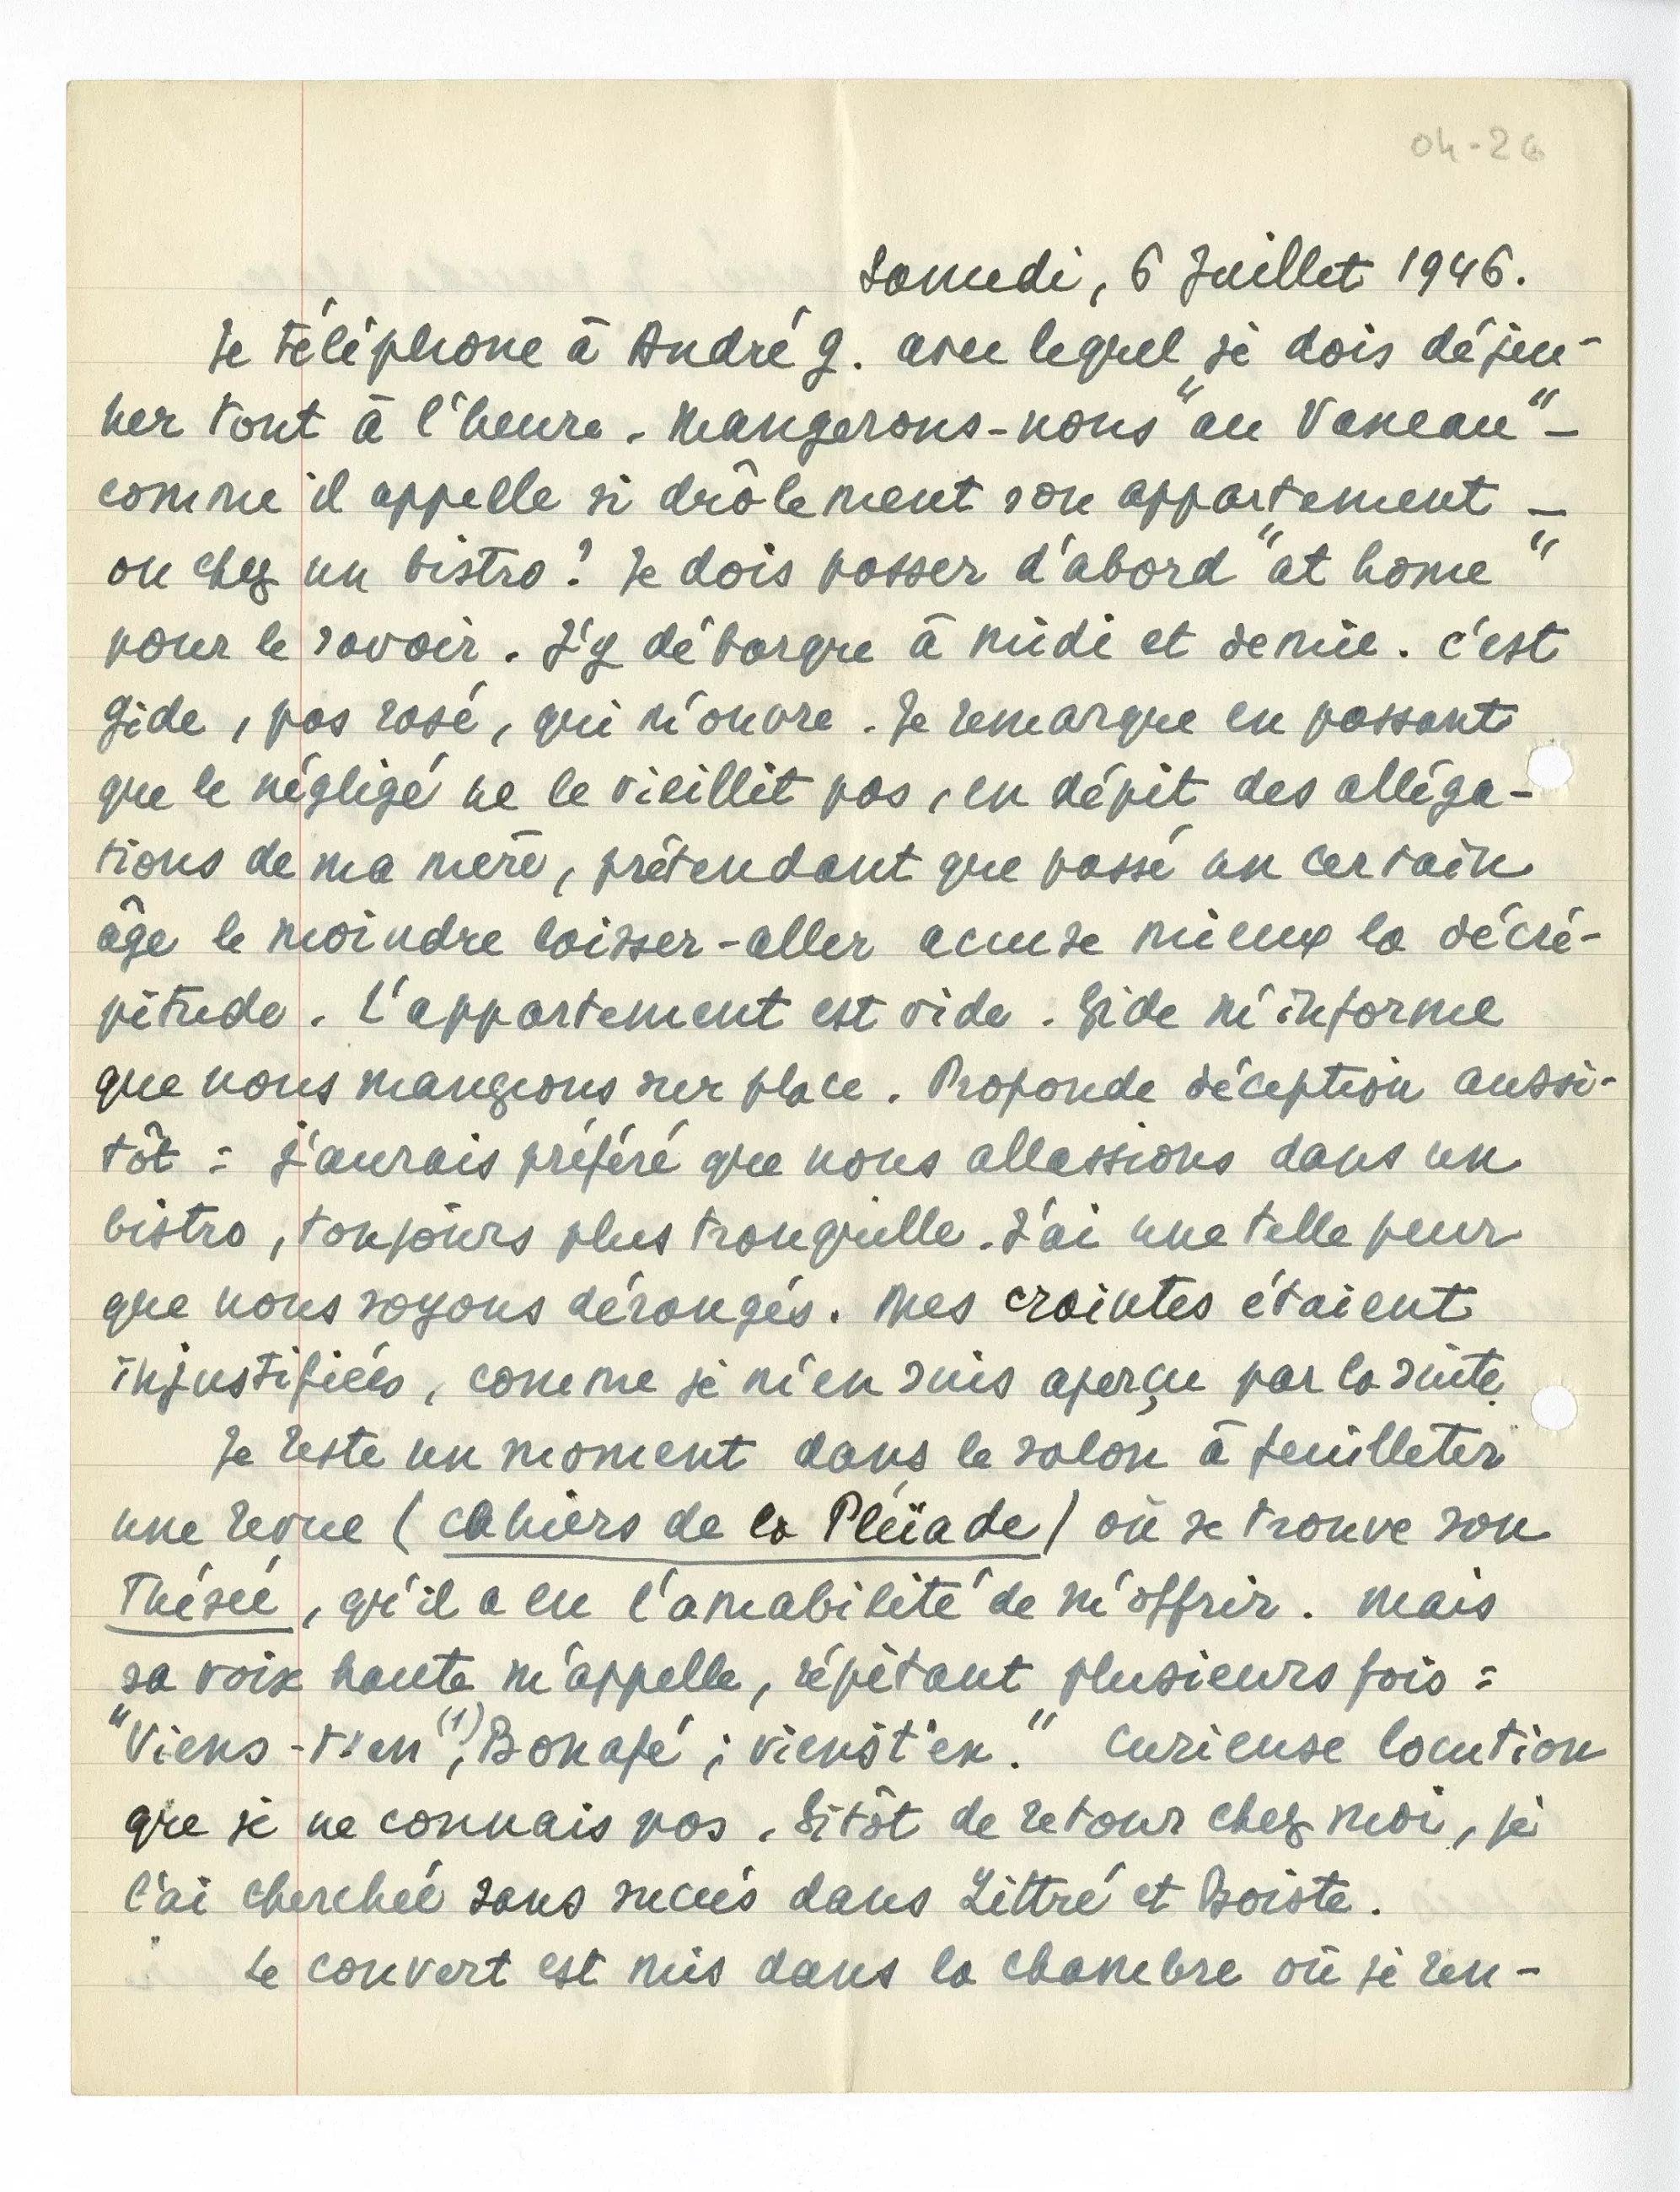 04-26
Samedi, 6 Juillet 1946.
Je téléphone à André G. avec lequel je dois déjeu-
ner tout à l'heure. Mangerons-nous "au Vaneau" –
comme il appelle si drôlement son appartement –
ou chez un bistro? Je dois passer d'abord "at home"
pour le savoir. J'y débarque à midi et demie. C'est
Gide, pas rasé, qui m'ouvre. Je remarque en passant
que le négligé ne le vieillit pas, en dépit des alléga-
tions de ma mère, prétendant que passé un certain
âge le moindre laisser-aller accuse mieux la décré-
pitude. L'appartement est vide. Gide m'informe
que nous mangions sur place. Profonde déception aussi-
tôt : j'aurais préféré que nous allassions dans un
bistro, toujours plus tranquille. J'ai une telle peur
que nous soyons dérangés. Mes craintes étaient
injustifiées, comme je m'en suis aperçu par la suite.
Je reste un moment dans le salon à feuilleter
une revue (Cahiers de la Pléïade) où se trouve son
Thésée, qu'il a eu l'amabilité de m'offrir. Mais
sa voix haute m'appelle, répétant plusieurs fois :
"Viens-t'en (1), Bonafé ; viens t'en." Curieuse locution
que je ne connais pas. Sitôt de retour chez moi, je
l'ai cherchée sans succès dans Littré et Boiste.
Le couvert est mis dans la chambre où je ren-